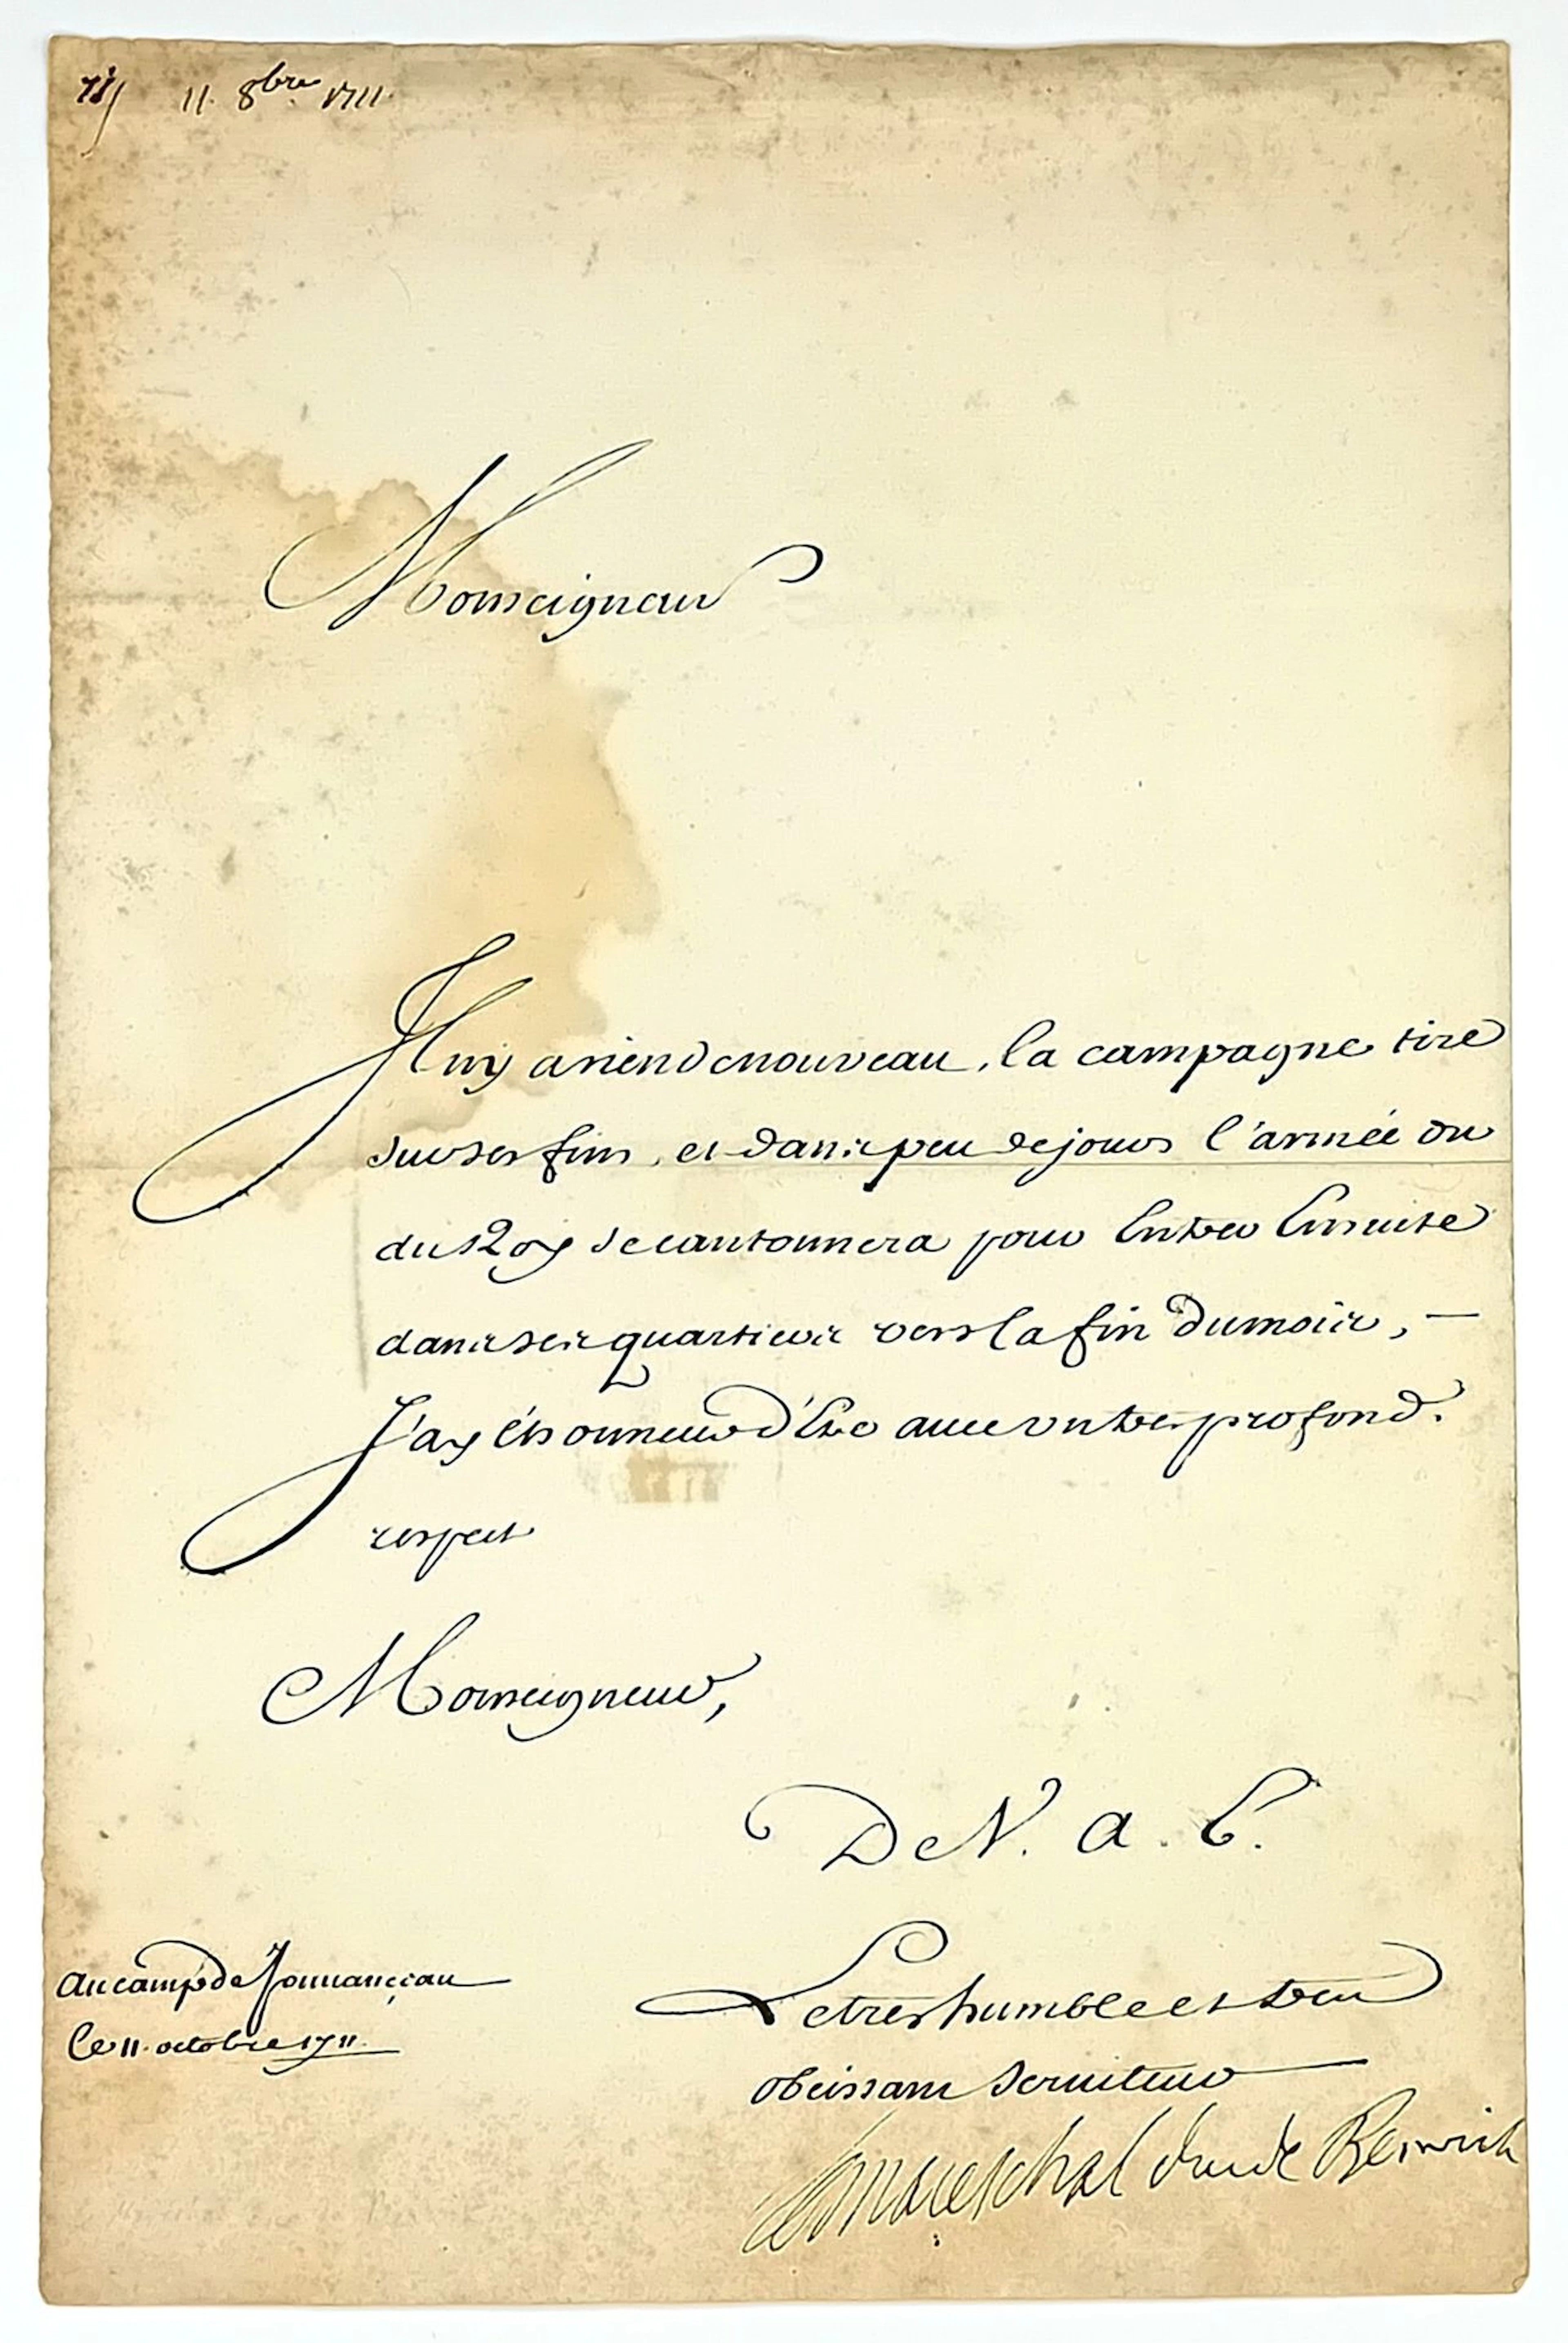 11. 8bre 1711.
Monseigneur
Il ny a rien de nouveau, la campagne tire
sur ses fins, et dans peu de jours l'armée du
du Roy se cantonnera pour Entrer Ensuite
dans ses quartiers vers la fin du mois, —
J'ay l'honneur d'Etre avec un tres profond.
respect
Monseigneur,
De V. A. S.
Le tres humble et tres
obeissant serviteur
Au camp de
le 11. octobre 1711.
le mareschal duc de Berwick